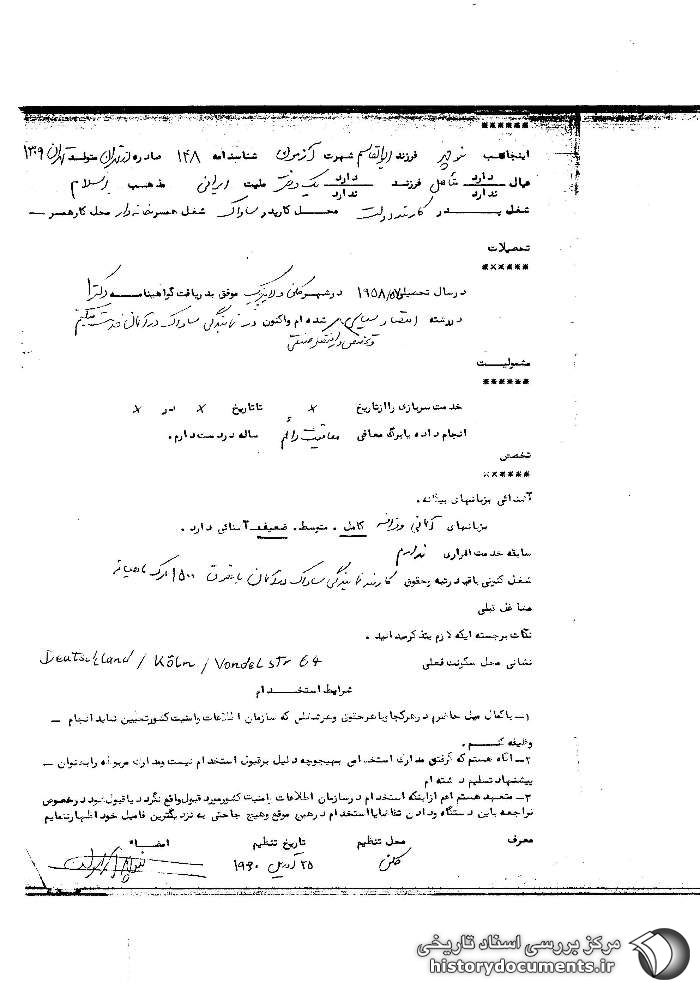 ******
اینجانب منوچهر فرزند ابوالقاسم شهرت آزمون شناسنامه ۱۴۸ صادره از تهران متولد تهران ۱۳۰۹
عیال دارد ندارد شاغل فرزند دارد ندارد یک دختر ملیت ایرانی مذهب اسلام
شغل پدر کارمند دولت محل کار پدر ساواک شغل همسر خانه‌دار محل کار همسر —
تحصیلات
******
در سال تحصیلی ۱۹۵۸/۵۷ در شهر کلن و لایپزیک موفق بدریافت گواهینامه دکترا
در رشته اقتصاد و سیاسی شده ام واکنون در نمایندگی ساواک در آلمان خدمت میکنم
و تخصص در اقتصاد صنعتی
مشمولیت
******
خدمت سربازی را از تاریخ × تا تاریخ × در ×
انجام داده یا برگ معافی معافیت دائم ساله در دست دارم.
تخصص
******
آشنائی بزبانهای بیگانه.
بزبانهای آلمانی و فرانسه کامل . متوسط . ضعیف آشنائی دارد .
سابقه خدمت اداری ندارم
شغل کنونی باقید رتبه وحقوق کارمند نمایندگی ساواک در آلمان با حقوق ۱۵۰۰ مارک ماهیانه
مشاغل قبلی
نکات برجسته ایکه لازم بتذکر میدانید .
نشانی محل سکونت فعلی Deutschland / Köln / Vondelstr 64
شرایط استخدام
۱- باکمال میل حاضرم در هرکجا وباهرحقوق وهرشغلی که سازمان اطلاعات وامنیت کشور تعیین نماید انجام —
وظیفه کنم .
۲- آگاه هستم که گرفتن مدارک استخدامی بهیچوجه دلیل برقبول استخدام نیست ومدارک مربوطه رابعنوان —
پیشنهاد تسلیم داشته ام
۳- متعهد هستم اعم ازاینکه استخدام درسازمان اطلاعات وامنیت کشور مورد قبول واقع نگردد یا قبول شود درخصوص
مراجعه باین دستگاه ودادن تقاضای استخدام درهیچ موقع وهیچ جا حتی به نزدیکترین فامیل خود اظهار ننمایم
معرف محل تنظیم تاریخ تنظیم امضاء
کلن ۲۵ آوریل ۱۹۶۰
مرکز بررسی اسناد تاریخی
historydocuments.ir